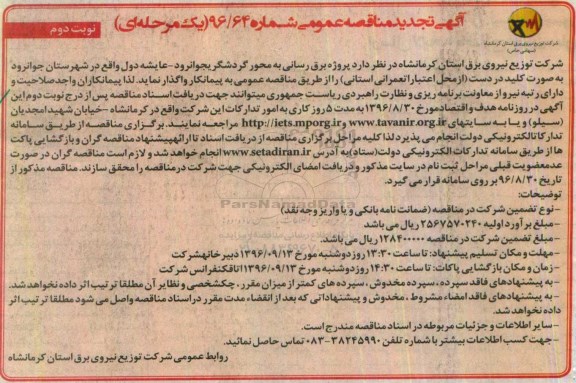 آگهی تجدید مناقصه عمومی شماره ۹۶/۶۴ (یک مرحله‌ای)
نوبت دوم
شرکت توزیع نیروی برق استان کرمانشاه
(سهامی خاص)
شرکت توزیع نیروی برق استان کرمانشاه در نظر دارد پروژه برق رسانی به محور گردشگری جوانرود-عایشه دول واقع در شهرستان جوانرود
به صورت کلید در دست (از محل اعتبارات عمرانی استانی) را از طریق مناقصه عمومی به پیمانکار واگذار نماید. لذا پیمانکاران واجد صلاحیت و
دارای رتبه نیرو از معاونت برنامه ریزی و نظارت راهبردی ریاست جمهوری میتوانند جهت دریافت اسناد مناقصه پس از درج نوبت دوم این
آگهی در روزنامه هدف و اقتصاد مورخ ۱۳۹۶/۸/۳۰ به مدت ۵ روز کاری به امور تدارکات این شرکت واقع در کرمانشاه - خیابان شهید امجدیان
(سیلو) و یا به سایتهای www.tavanir.org.ir و http://iets.mporg.ir مراجعه نمایند. برگزاری مناقصه از طریق سامانه
تدارکات الکترونیکی دولت انجام می پذیرد لذا کلیه مراحل برگزاری مناقصه از دریافت اسناد تا ارائه پیشنهاد مناقصه گران و بازگشایی پاکت
ها از طریق سامانه تدارکات الکترونیکی دولت (ستاد) به آدرس www.setadiran.ir انجام خواهد شد و لازم است مناقصه گران در صورت
عدم عضویت قبلی مراحل ثبت نام در سایت مذکور و دریافت امضای الکترونیکی جهت شرکت در مناقصه را محقق سازند. مناقصه مذکور از
تاریخ ۹۶/۸/۳۰ بر روی سامانه قرار می گیرد.
توضیحات:
-نوع تضمین شرکت در مناقصه (ضمانت نامه بانکی و یا واریز وجه نقد)
-مبلغ برآورد اولیه ۲۵۶۷۵۷۰۲۴۰ ریال می باشد
-مبلغ تضمین شرکت در مناقصه ۱۲۸۴۰۰۰۰۰ ریال می باشد.
-مهلت و مکان تسلیم پیشنهاد: تا ساعت ۱۳:۳۰ روز دوشنبه مورخ ۱۳۹۶/۰۹/۱۳ دبیرخانه شرکت
-زمان و مکان بازگشایی پاکات: تا ساعت ۱۴:۳۰ روز دوشنبه مورخ ۱۳۹۶/۰۹/۱۳ اتاق کنفرانس شرکت
- به پیشنهادهای فاقد سپرده، سپرده مخدوش، سپرده های کمتر از میزان مقرر، چک شخصی و نظایر آن مطلقا ترتیب اثر داده نخواهد شد.
- به پیشنهادهای فاقد امضاء مشروط، مخدوش و پیشنهاداتی که بعد از انقضاء مدت مقرر در اسناد مناقصه واصل می شود مطلقا ترتیب اثر
داده نخواهد شد.
-سایر اطلاعات و جزئیات مربوطه در اسناد مناقصه مندرج است.
-جهت کسب اطلاعات بیشتر با شماره تلفن ۳۸۲۴۵۹۹۰-۰۸۳ تماس حاصل نمائید.
روابط عمومی شرکت توزیع نیروی برق استان کرمانشاه
ParsNamadData